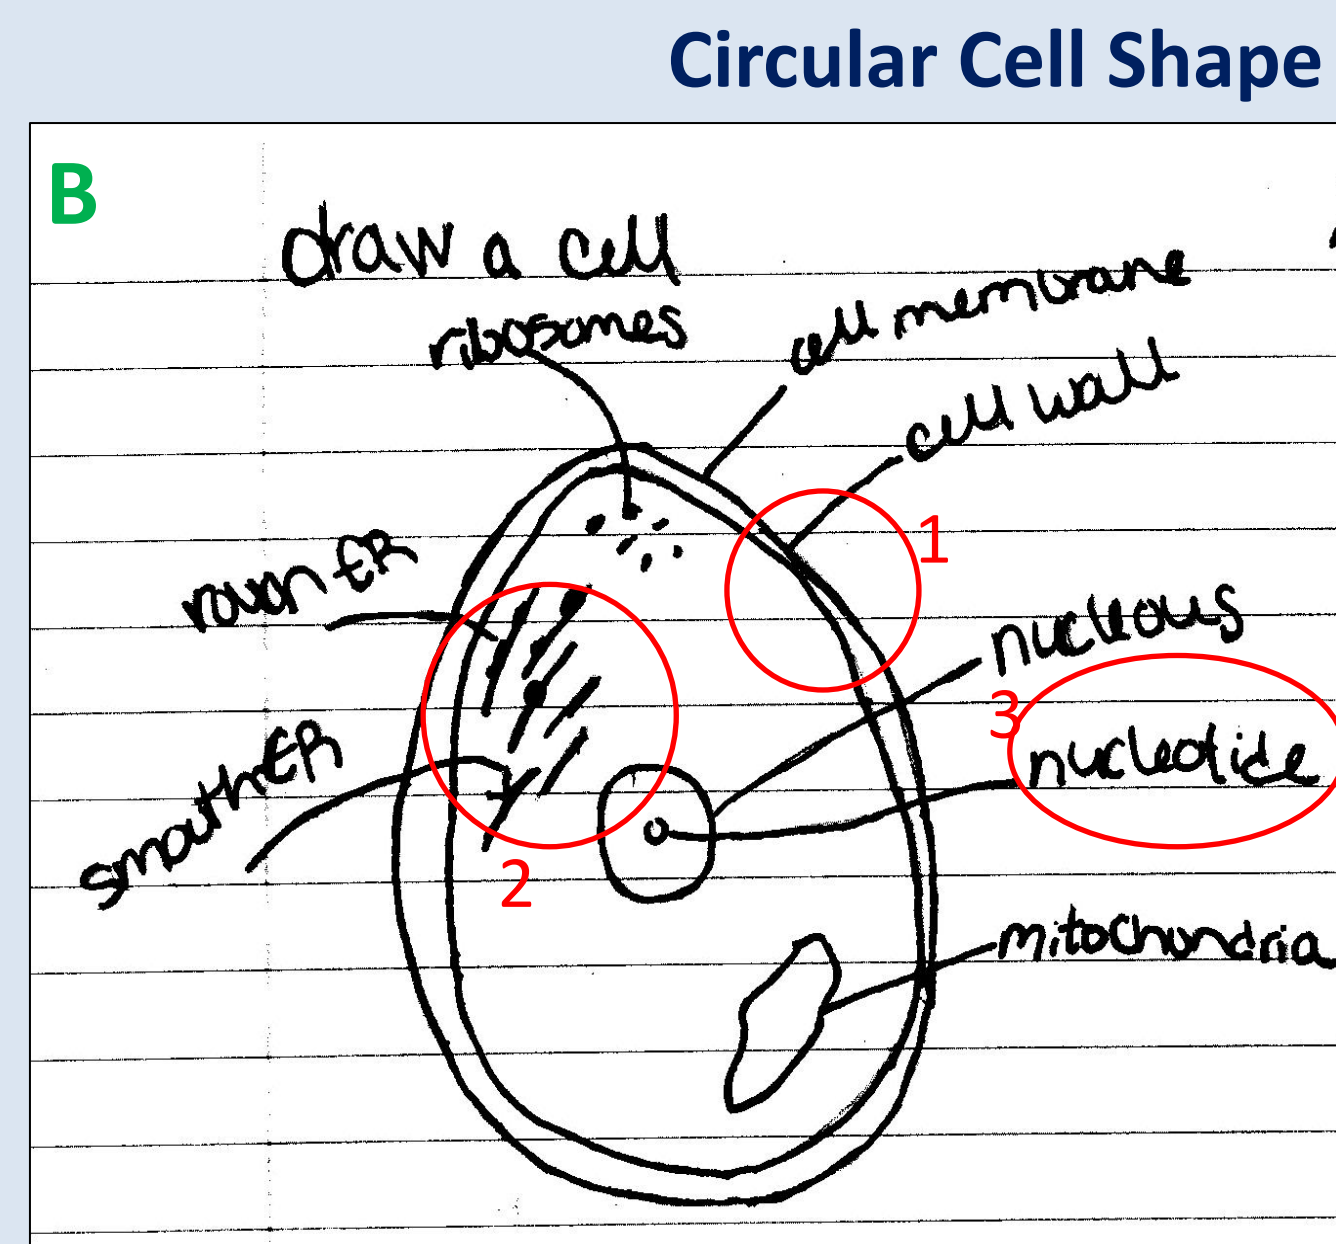 Circular Cell Shape
B
draw a cell
ribosomes
cell membrane
cell wall
1
rough ER
nucleous
3
nucleotide
smouth ER
2
mitochondria